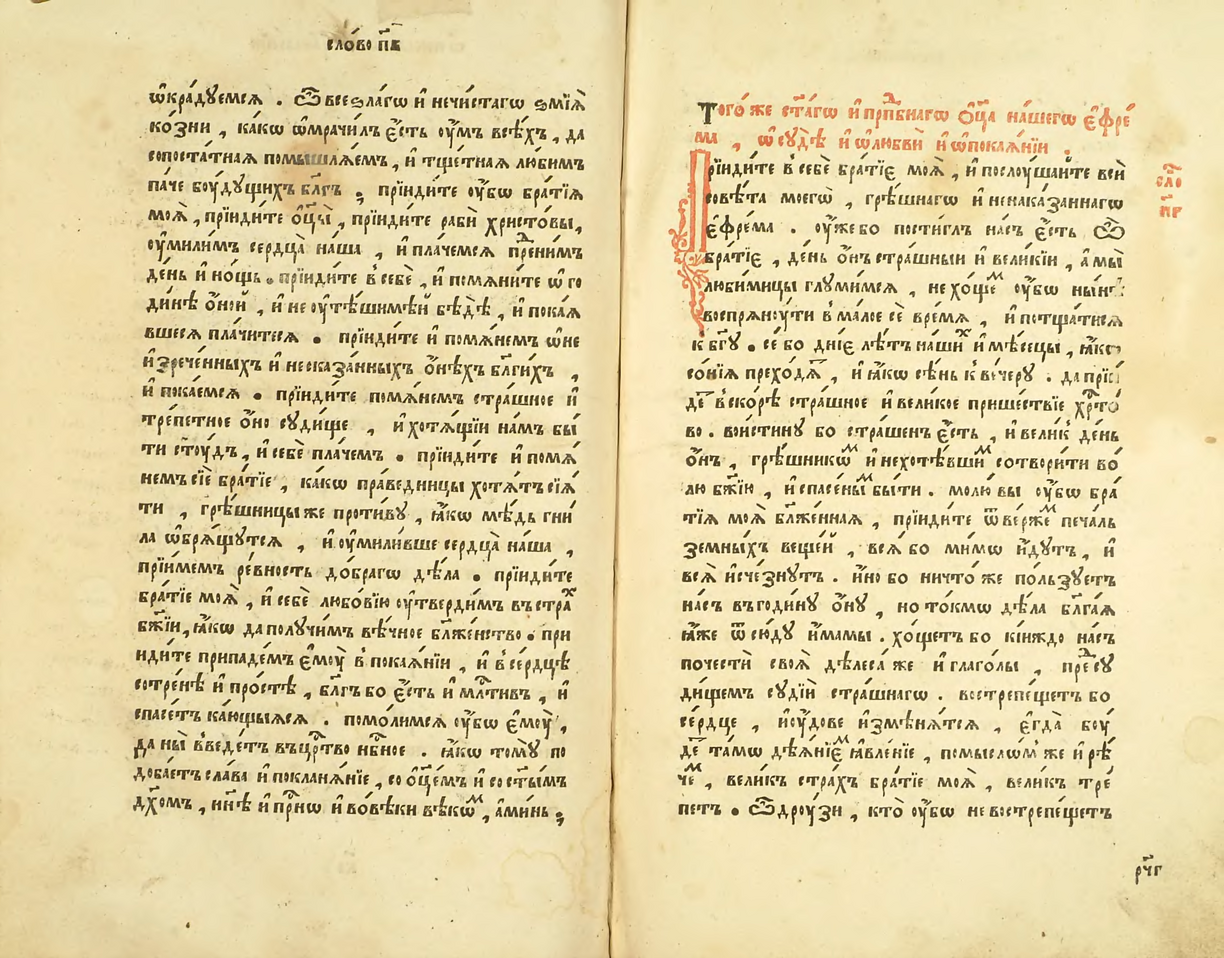 сло́во п҃в
ѡ҆кра́дꙋемсѧ . Ѿ всеѕла́гѡ и҆ нечи́стагѡ ѕмі́ѧ
ко́зни , ка́кѡ ѡ҆мрачи́лъ є҆́сть оу҆́мъ всѣ́хъ , да
сопоста́тнаѧ помышлѧ́емъ , и҆ тще́тнаѧ лю́бимъ
па́че боу́дꙋщихъ бл҃гъ ; прїиди́те оу҆́бѡ бра́тїѧ
моѧ҆̀ , прїиди́те ѻ҆тцы̀ , прїиди́те рабѝ христо́вы ,
оу҆мили́мъ сердца̀ на́ша , и҆ пла́чемсѧ пре́нимъ
де́нь и҆ но́щь . прїиди́те в себѐ , и҆ помѧни́те ѡ҆ го
ди́нѣ ѻ҆́ной , и҆ не оу҆тѣ́шимѣй бѣдѣ̀ , и҆ пока́ѧ
вшесѧ пла́читесѧ . прїиди́те и҆ помѧ́немъ ѡ҆ не
и҆зрече́нныхъ и҆ несказа́нныхъ ѻ҆́нѣхъ бл҃ги́хъ ,
и҆ пока́емсѧ . прїиди́те помѧ́немъ стра́шное и҆
тре́петное ѻ҆́но сꙋди́ще , и҆ хотѧ́щїи на́мъ бы́
ти сто́удъ , и҆ себѐ пла́чемъ . прїиди́те и҆ помѧ́
немъ сїѐ бра́тїе , ка́кѡ пра́ведницы хотѧ́тъ сїѧ́
ти , грѣ́шницы же проти́вꙋ , ꙗ҆́кѡ мѣ́дь гни
ла̀ ѡ҆брѧ́щꙋтсѧ , и҆ оу҆мили́вше сердца̀ на́ша ,
прїи́мемъ ре́вность до́брагѡ дѣ́ла . прїиди́те
бра́тїе моѧ҆̀ , и҆ себѐ любо́вїю оу҆тверди́мъ въ стра́х
бж҃їи , ꙗ҆́кѡ да полꙋчи́мъ вѣ́чное бл҃же́нство . при
иди́те припаде́мъ є҆моу̀ в покаѧ́нїи , и҆ в се́рдцѣ
сотре́нѣ и҆ про́стѣ , бл҃гъ бо є҆́сть и҆ мл҃тивъ , и҆
спасе́тъ ка́ющыѧсѧ . помо́лимсѧ оу҆́бѡ є҆моу̀ ,
да ны̀ введе́тъ въ црⷭ҇тво нб҃ное . ꙗ҆́кѡ томꙋ̀ по
доба́етъ сла́ва и҆ покланѧ́нїе , со ѻ҆ц҃е́мъ и҆ со ст҃ы́мъ
дх҃омъ , ни҃ѣ и҆ при҃ѡ и҆ во вѣ́ки вѣкѡ́м , а҆ми́нь ;
Того́ же ст҃а́гѡ и҆ прпⷣбнагѡ ѻ҆ц҃а̀ на́шегѡ є҆фре́
ма , ѡ҆ сꙋдѣ̀ и҆ ѡ҆ любвѝ и҆ ѡ҆ покаѧ́нїи .
Прїиди́те в себѐ бра́тїѥ моѧ҆̀ , и҆ послоу́шайте всѝ
совѣ́та моегѡ̀ , грѣ́шнагѡ и҆ ненака́заннагѡ
є҆фре́ма . оу҆же́ бо пости́глъ на́съ є҆́сть Ѽ
бра́тїѥ , де́нь ѻ҆́нъ стра́шныи и҆ вели́кїи , а҆ мы̀
люби́мицы глꙋми́мсѧ , не хо́щем оу҆́бѡ ны́нѣ
воспрѧноу́ти в ма́лое сѐ вре́мѧ , и҆ потща́тисѧ
к бг҃ꙋ . се́ бо дни́ѥ лѣ́тъ на́ших и҆ мѣ́сецы , ꙗ҆́кѡ
со́нїѧ прехо́дѧт , и҆ ꙗ҆́кѡ сѣ́нь к ве́черꙋ . да прїи́
дет вско́рѣ стра́шное и҆ вели́кое прише́ствїе хр҃то́
во . вои́стинꙋ бо стра́шенъ є҆́сть , и҆ вели́к де́нь
ѻ҆́нъ , грѣ́шникѡм и҆ нехотѣ́вшим сотвори́ти во́
лю бж҃їю , и҆ спасе́ным бы́ти . молю́ вы оу҆́бѡ бра́
тїѧ моѧ҆̀ бл҃же́ннаѧ , прїиди́те ѿве́ржем печа́ль
земны́хъ веще́й , всѧ́ бо ми́мѡ и҆́дꙋтъ , и҆
всѧ̀ и҆сче́знꙋтъ . и҆́но бо ничто́ же по́льзꙋетъ
на́съ въ годи́нꙋ ѻ҆́нꙋ , но то́кмѡ дѣ́ла бл҃га́ѧ
ꙗ҆́же ѿ сю́дꙋ и҆́мамы . хо́щетъ бо кі́иждо на́съ
почестѝ своѧ҆̀ дѣлеса́ же и҆ глаго́лы , предⷣ сꙋ
ди́щемъ сꙋдїѝ стра́шнагѡ . востре́пещетъ бо
се́рдце , и҆ оу́дове и҆змѣ́нѧтсѧ , є҆гда̀ боу́
дет та́мѡ дѣѧ́нїѥ ꙗ҆вле́нїе , помыслѡ́м же и҆ рѣ́
че́м , вели́къ стра́хъ бра́тїе моѧ҆̀ , вели́къ тре́
петъ . Ѽ дроу́зи , кто̀ оу҆́бѡ не востре́пещетъ
сло́
п҃г
рч҃г